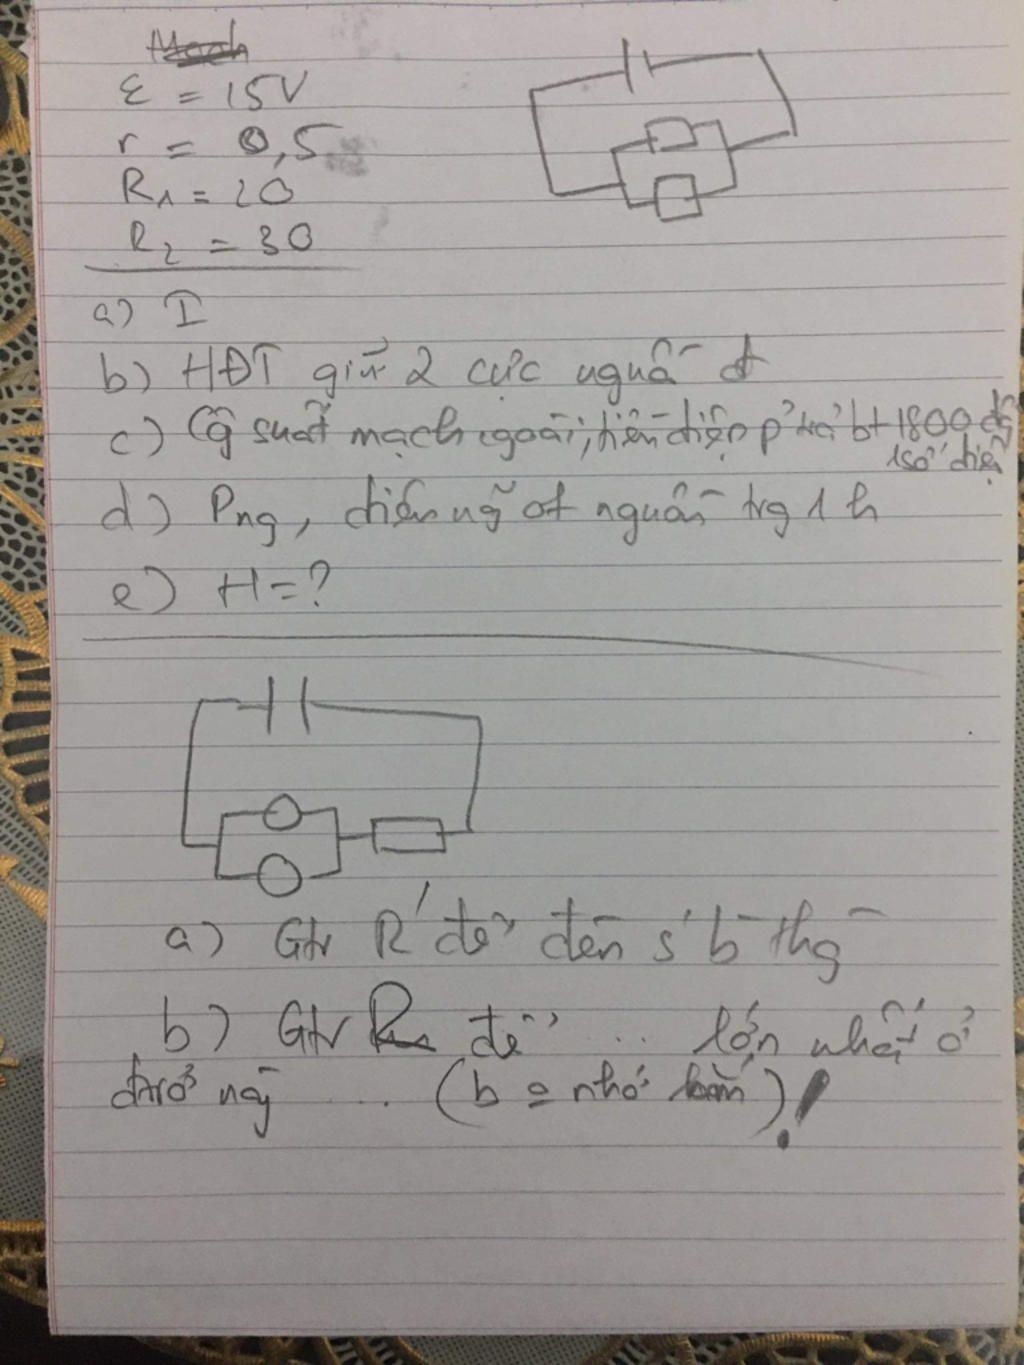 Mạch
ε = 15V
r = 0,5
R1 = 20
R2 = 30
a) I
b) HĐT giữ 2 cực nguồ đ
c) Cg suất mạch ngoài, tiền điện p' trả bt 1800 đ
1 số điện
d) Png, điện ng of nguồn trg 1 h
e) H = ?
a) Gtr R để đèn s' b thg
b) Gtr R để ... lớn nhất ở
trở này ... (b nhớ)!